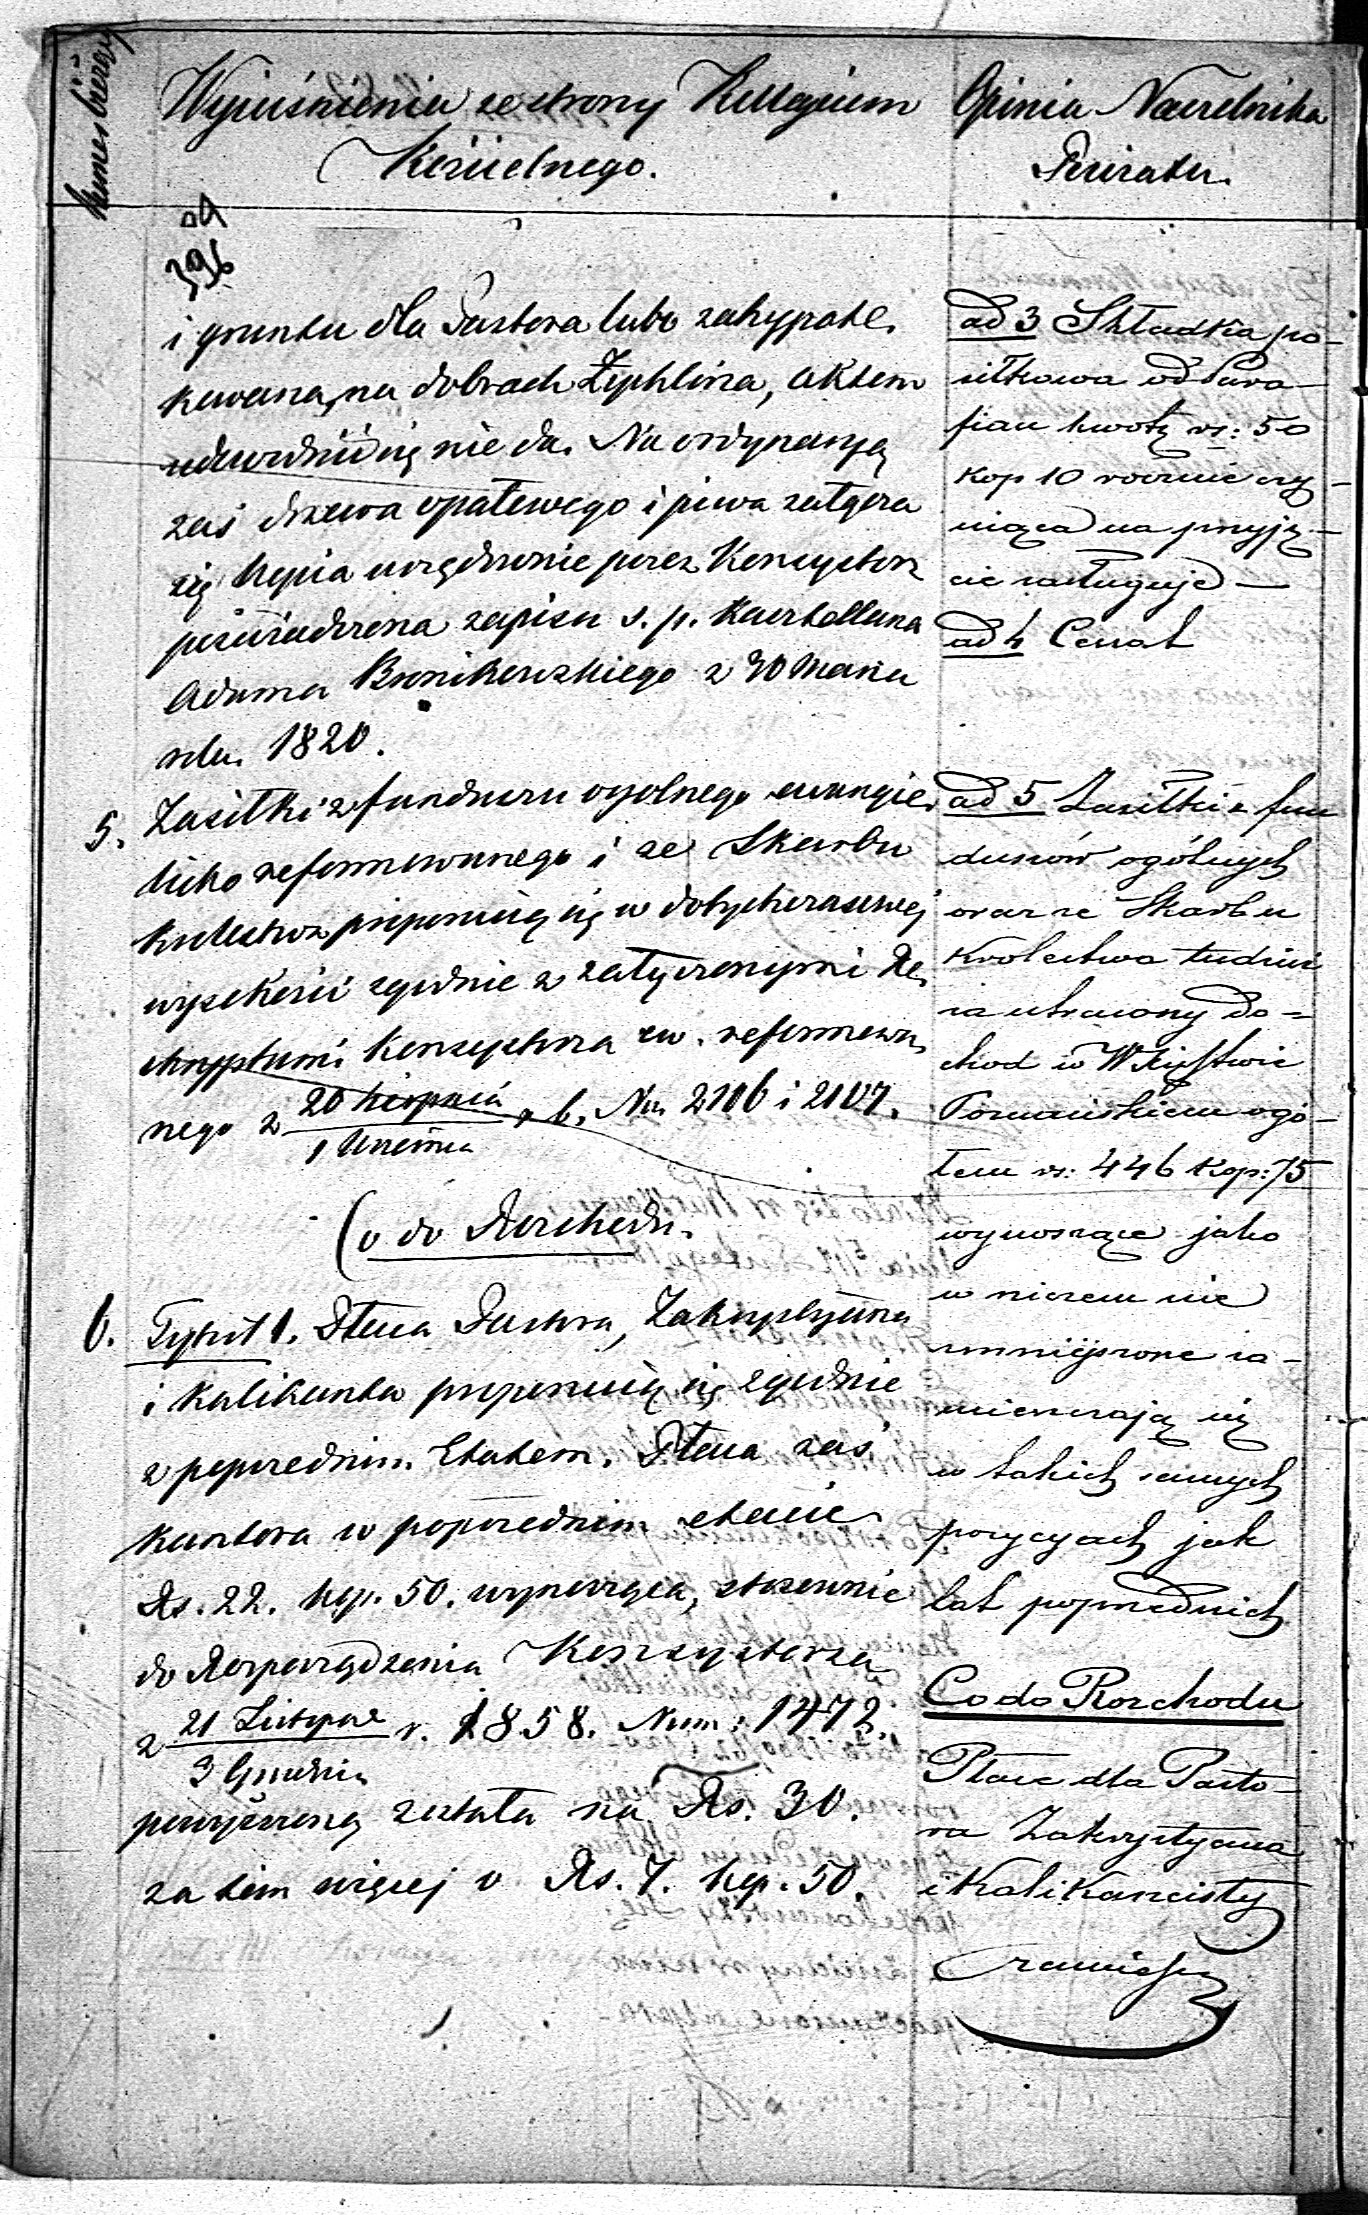 Numer bieżący
Wyjaśnienia ze strony Kollegium
Kościelnego.
Opinia Naczelnika
Powiatu.
ad
396
i gruntu dla Pastora lubo zahypote-
kowana, na dobrach Żychlina, aktem
udowodnić się nie da. Na ordynaryą
zaś drzewa opałowego i piwa załącza
się kopia urzędownie przez Konsystorz
poświadczona zapisu s. p. Kasztellana
Adama Bronikowskiego z 30 Marca
roku 1820.
5. Zasiłki z funduszu ogolnego ewangie-
licko reformowanego i ze Skarbu
Krolestwa proponują się w dotychczasowej
wysokości zgodnie z załączonymi Re-
skryptami Konsystorza ew. reformowa-
nego z 20 Sierpnia r. b. No 2106 i 2107.
1 Września
Co do Rozchodu.
6. Tytuł 1. Płaca Pastora, Zakrystyana
i Kalikanta proponują się zgodnie
z poprzednim Etatem. Płaca zaś
Kantora w poprzednim etacie
Rs. 22. kop. 50. wynosząca, stosownie
do Rozporządzenia Konsystorza
z 21 Listopad r. 1858. Num: 1472.
3 Grudnia
powyższoną została na Rs. 30.
zatem więcej o Rs. 7. kop. 50.
ad 3 Składka po-
siłkowa od Para-
fian kwotę rs: 50
kop 10 rocznie czy-
niąca na przyję-
cie zasługuje —
ad 4
ad 5 Zasiłki z fun
duszów ogólnych
oraz ze Skarbu
Krolestwa tudzież
za utracony do-
chod w W Xięstwie
Poznańskiem ogó-
łem rs: 446 Kop: 75
wynoszące jako
w niczem nie
zmniejszone za-
mieszczają się
w takich samych
pozycyach jak
lat poprzednich
Co do Rozchodu
Płace dla Pasto-
ra Zakrystyana
i Kalikancisty